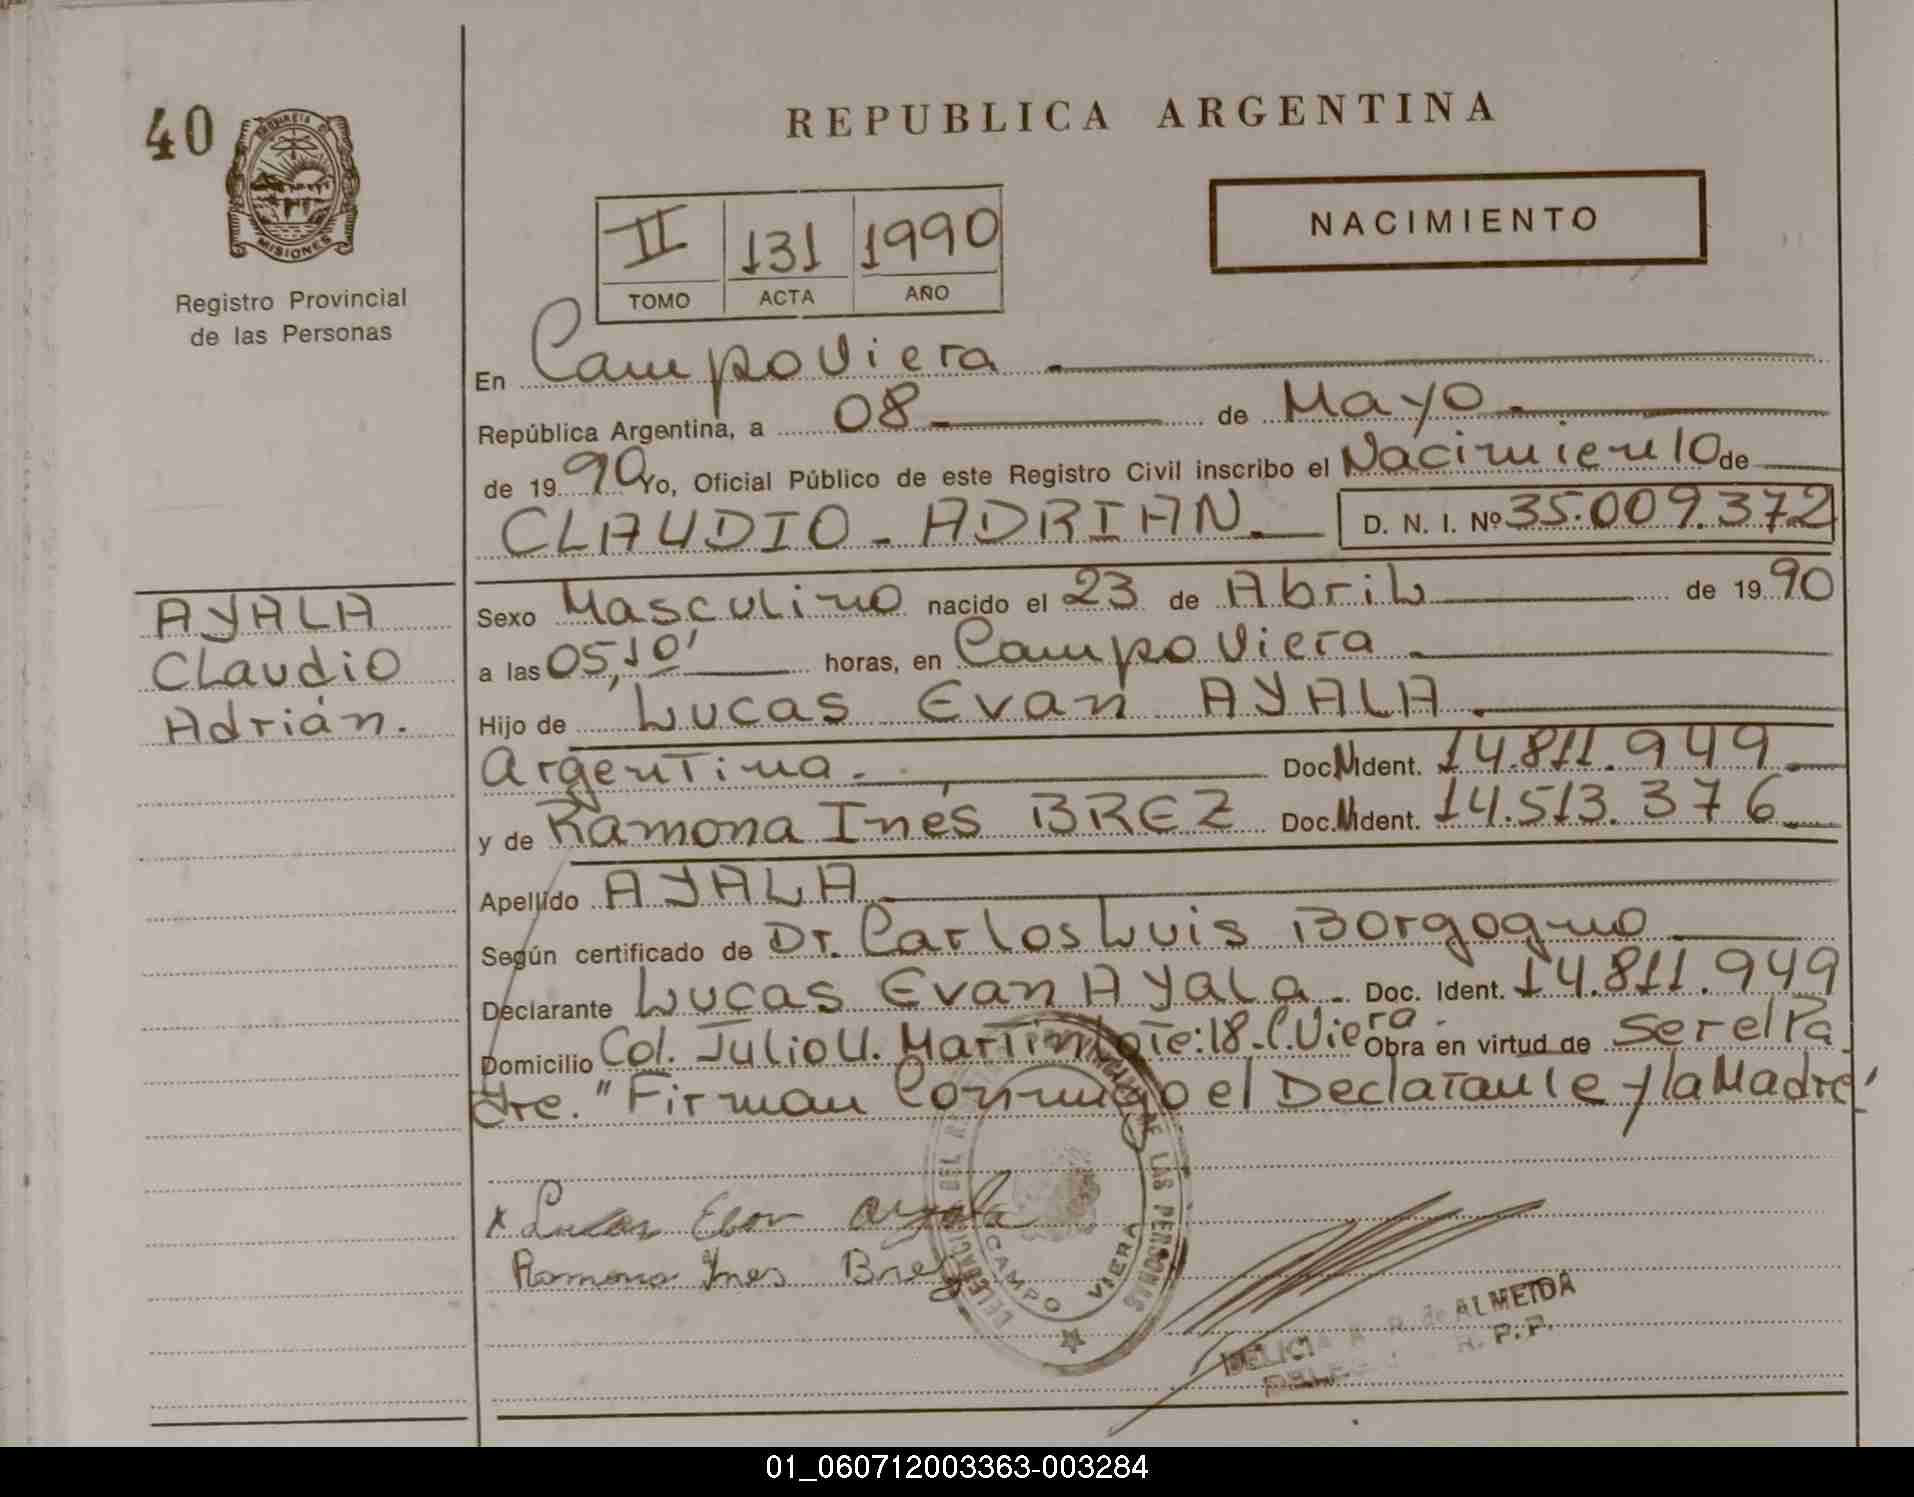 40
PROVINCIA DE
MISIONES
Registro Provincial
de las Personas
REPUBLICA ARGENTINA
NACIMIENTO
II 131 1990
TOMO ACTA AÑO
En Campo Viera
República Argentina, a 08 de Mayo
de 1990 Yo, Oficial Público de este Registro Civil inscribo el Nacimiento de
CLAUDIO - ADRIAN D. N. I. Nº 35.009.372
AYALA
Claudio
Adrián.
Sexo Masculino nacido el 23 de Abril de 1990
a las 05,10' horas, en Campo Viera
Hijo de Lucas Evan AYALA
Argentina. Doc.N.Ident. 14.811.949
y de Ramona Inés BREZ Doc.N.Ident. 14.513.376
Apellido AYALA
Según certificado de Dr. Carlos Luis Borgogno
Declarante Lucas Evan Ayala. Doc. Ident. 14.811.949
Domicilio Col. Julio U. Martin Lote:18.C.Viera. Obra en virtud de ser el Pa
dre. "Firman Conmigo el Declarante y la Madre"
x Lucas Evan Ayala
Ramona Ines Brez
DE LAS PERSONAS
CAMPO VIERA
de ALMEIDA
R. P. P.
01_060712003363-003284